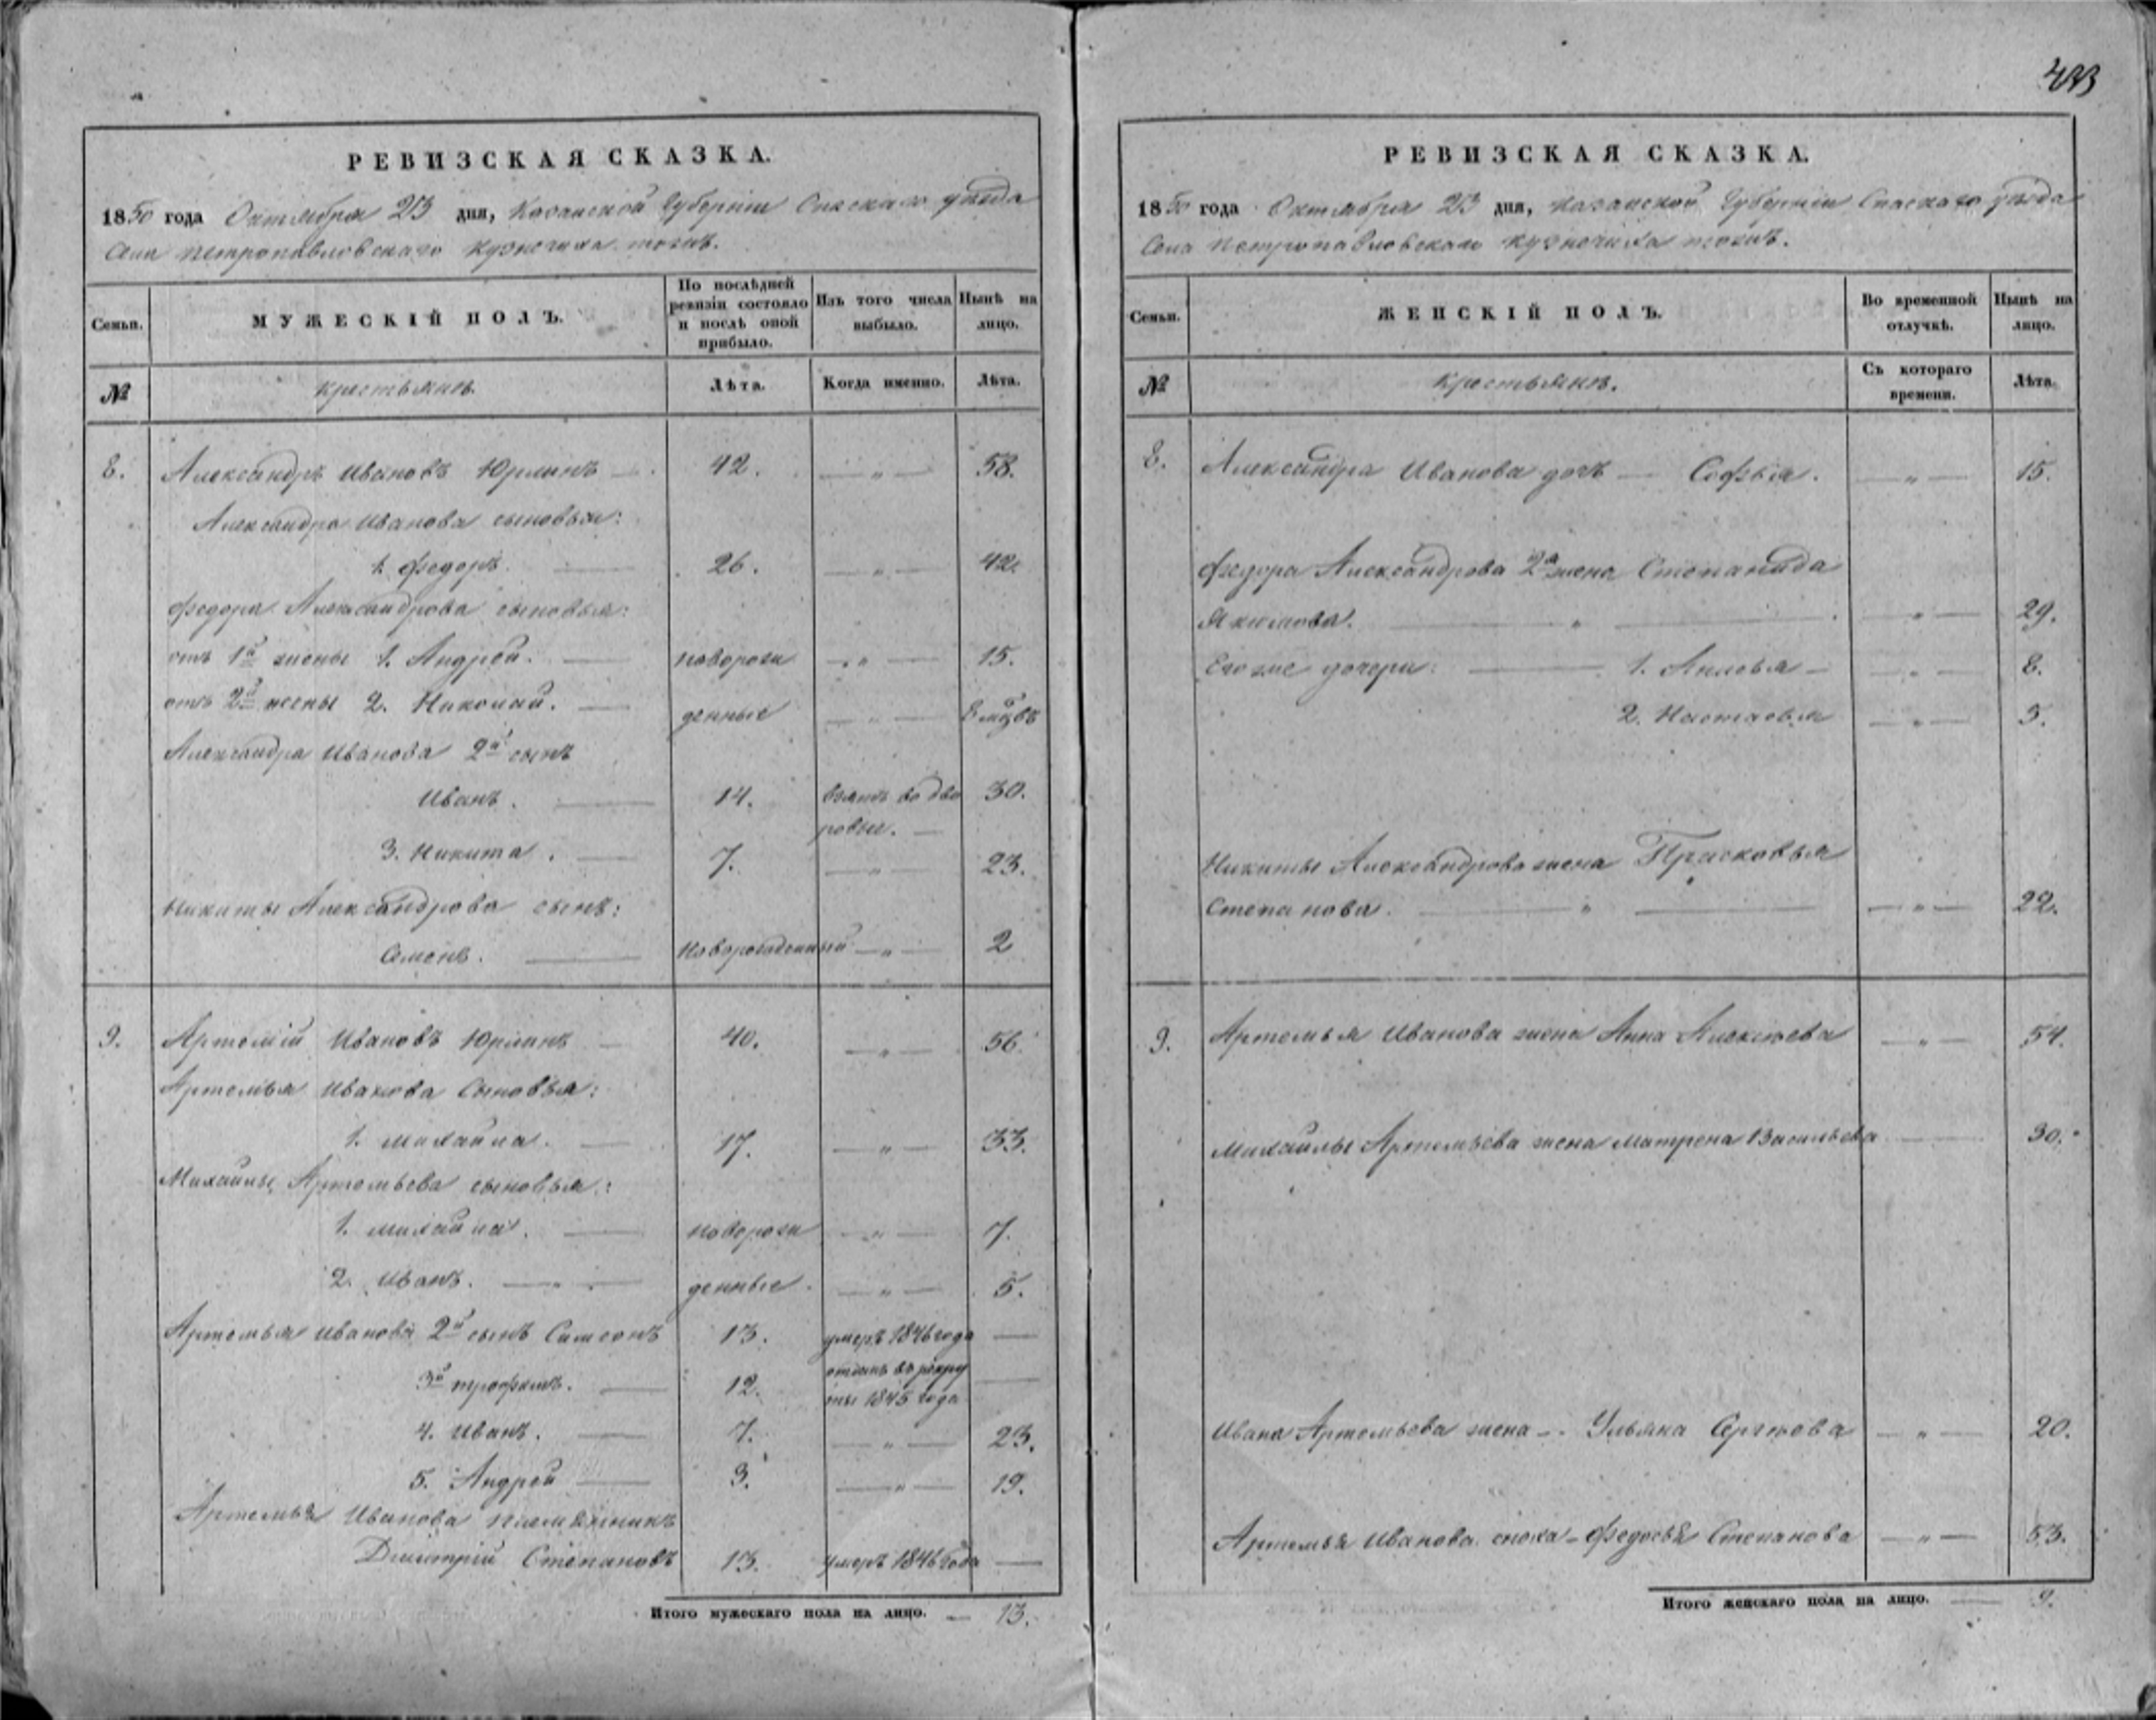 РЕВИЗСКАЯ СКАЗКА.
1850 года Октября 23 дня, Казанской Губерніи Спаскаго уѣзда
Села Петропавловскаго Кузнечиха тожъ.
Семьи.
МУЖЕСКІЙ ПОЛЪ.
По послѣдней ревизіи состояло и послѣ оной прибыло.
Изъ того числа выбыло.
Нынѣ на лицо.
№
Крестьянъ.
Лѣта.
Когда именно.
Лѣта.
8. Александръ Ивановъ Юрлинъ — 42. — „ — 58.
Александра Иванова сыновья:
1. Федоръ. — 26. — „ — 42.
Федора Александрова сыновья:
отъ 1й жены 1. Андрей. — новорож — „ — 15.
отъ 2й жены 2. Николай. — денные — „ — 8 мцвъ
Александра Иванова 2й сынъ
Иванъ. — 14. взятъ во дво 30.
ровые. —
3. Никита. — 7. — „ — 23.
Никиты Александрова сынъ:
Семенъ. — Новорожденный — „ — 2
9. Артемій Ивановъ Юрлинъ — 40. — „ — 56.
Артемья Иванова Сыновья:
1. Михайла. — 17. — „ — 33.
Михайлы Артемьева сыновья:
1. Михайла. — новорож — „ — 7.
2. Иванъ. — „ — денные. — „ — 5.
Артемья Иванова 2й сынъ Самсонъ 13. умеръ 1846 года —
3й Трофимъ. — 12. отданъ въ рекру —
ты 1845 года
4. Иванъ. — 7. — „ — 23.
5. Андрей — 3. — „ — 19.
Артемья Иванова племянникъ
Дмитрій Степановъ 13. умеръ 1846 года —
Итого мужескаго пола на лицо. — 13.
433
РЕВИЗСКАЯ СКАЗКА.
1850 года Октября 23 дня, Казанской Губерніи Спаскаго уѣзда
Села Петропавловскаго Кузнечиха тожъ.
Семьи.
ЖЕНСКІЙ ПОЛЪ.
Во временной отлучкѣ.
Нынѣ на лицо.
№
Крестьянъ.
Съ котораго времени.
Лѣта.
8. Александра Иванова дочь — Софья. — „ — 15.
Федора Александрова 2я жена Степанида
Якимова. — „ — — „ — 29.
Его же дочери: — 1. Анисья — — „ — 8.
2. Настасья — „ — 3.
Никиты Александрова жена Прасковья
Степанова. — „ — — „ — 22.
9. Артемья Иванова жена Анна Алексѣева — „ — 54.
Михайлы Артемьева жена Матрена Васильева — 30.
Ивана Артемьева жена — Ульяна Сергѣева — „ — 20.
Артемья Иванова сноха — Федосья Степанова — „ — 53.
Итого женскаго пола на лицо. — 9.